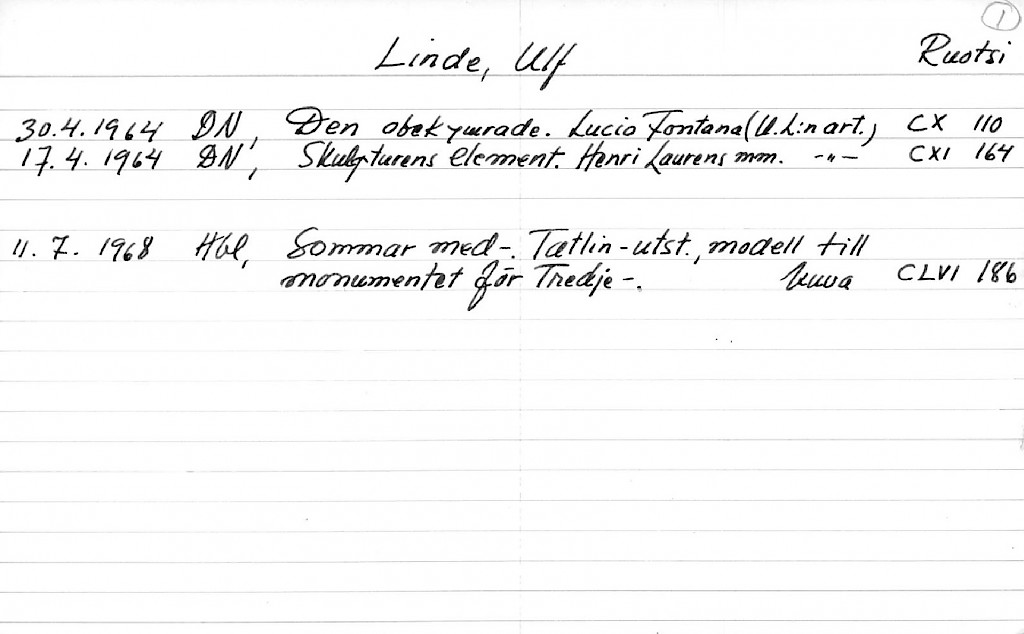 1
Linde, Ulf Ruotsi
30.4.1964 DN, Den obekymrade. Lucio Fontana (U.L:n art.) CX 110
17.4.1964 DN, Skulpturens element. Henri Laurens mm. -"- CXI 164
11.7.1968 Hbl, Sommar med -. Tatlin-utst., modell till
monumentet för Tredje -. kuva CLVI 186